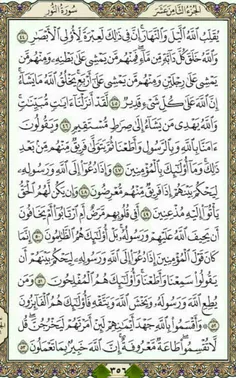 الجزء الثامن عشر
سورة النور
يُقَلِّبُ ٱللَّهُ ٱلَّيْلَ وَٱلنَّهَارَ إِنَّ فِي ذَٰلِكَ لَعِبْرَةً لِّأُو۟لِي ٱلْأَبْصَٰرِ ٤٤
وَٱللَّهُ خَلَقَ كُلَّ دَآبَّةٍ مِّن مَّآءٍ فَمِنْهُم مَّن يَمْشِي عَلَىٰ بَطْنِهِۦ وَمِنْهُم مَّن
يَمْشِي عَلَىٰ رِجْلَيْنِ وَمِنْهُم مَّن يَمْشِي عَلَىٰٓ أَرْبَعٍ يَخْلُقُ ٱللَّهُ مَا يَشَآءُ
إِنَّ ٱللَّهَ عَلَىٰ كُلِّ شَيْءٍ قَدِيرٌ ٤٥ لَّقَدْ أَنزَلْنَآ ءَايَٰتٍ مُّبَيِّنَٰتٍ
وَٱللَّهُ يَهْدِي مَن يَشَآءُ إِلَىٰ صِرَٰطٍ مُّسْتَقِيمٍ ٤٦ وَيَقُولُونَ
ءَامَنَّا بِٱللَّهِ وَبِٱلرَّسُولِ وَأَطَعْنَا ثُمَّ يَتَوَلَّىٰ فَرِيقٌ مِّنْهُم مِّنۢ بَعْدِ
ذَٰلِكَ وَمَآ أُو۟لَٰٓئِكَ بِٱلْمُؤْمِنِينَ ٤٧ وَإِذَا دُعُوٓا۟ إِلَى ٱللَّهِ وَرَسُولِهِۦ
لِيَحْكُمَ بَيْنَهُمْ إِذَا فَرِيقٌ مِّنْهُم مُّعْرِضُونَ ٤٨ وَإِن يَكُن لَّهُمُ ٱلْحَقُّ
يَأْتُوٓا۟ إِلَيْهِ مُذْعِنِينَ ٤٩ أَفِي قُلُوبِهِم مَّرَضٌ أَمِ ٱرْتَابُوٓا۟ أَمْ يَخَافُونَ
أَن يَحِيفَ ٱللَّهُ عَلَيْهِمْ وَرَسُولُهُۥ بَلْ أُو۟لَٰٓئِكَ هُمُ ٱلظَّٰلِمُونَ ٥٠
إِنَّمَا كَانَ قَوْلَ ٱلْمُؤْمِنِينَ إِذَا دُعُوٓا۟ إِلَى ٱللَّهِ وَرَسُولِهِۦ لِيَحْكُمَ بَيْنَهُمْ أَن
يَقُولُوا۟ سَمِعْنَا وَأَطَعْنَا وَأُو۟لَٰٓئِكَ هُمُ ٱلْمُفْلِحُونَ ٥١ وَمَن
يُطِعِ ٱللَّهَ وَرَسُولَهُۥ وَيَخْشَ ٱللَّهَ وَيَتَّقْهِ فَأُو۟لَٰٓئِكَ هُمُ ٱلْفَآئِزُونَ
٥٢ وَأَقْسَمُوا۟ بِٱللَّهِ جَهْدَ أَيْمَٰنِهِمْ لَئِنْ أَمَرْتَهُمْ لَيَخْرُجُنَّ قُل
لَّا تُقْسِمُوا۟ طَاعَةٌ مَّعْرُوفَةٌ إِنَّ ٱللَّهَ خَبِيرٌۢ بِمَا تَعْمَلُونَ ٥٣
٣٥٦